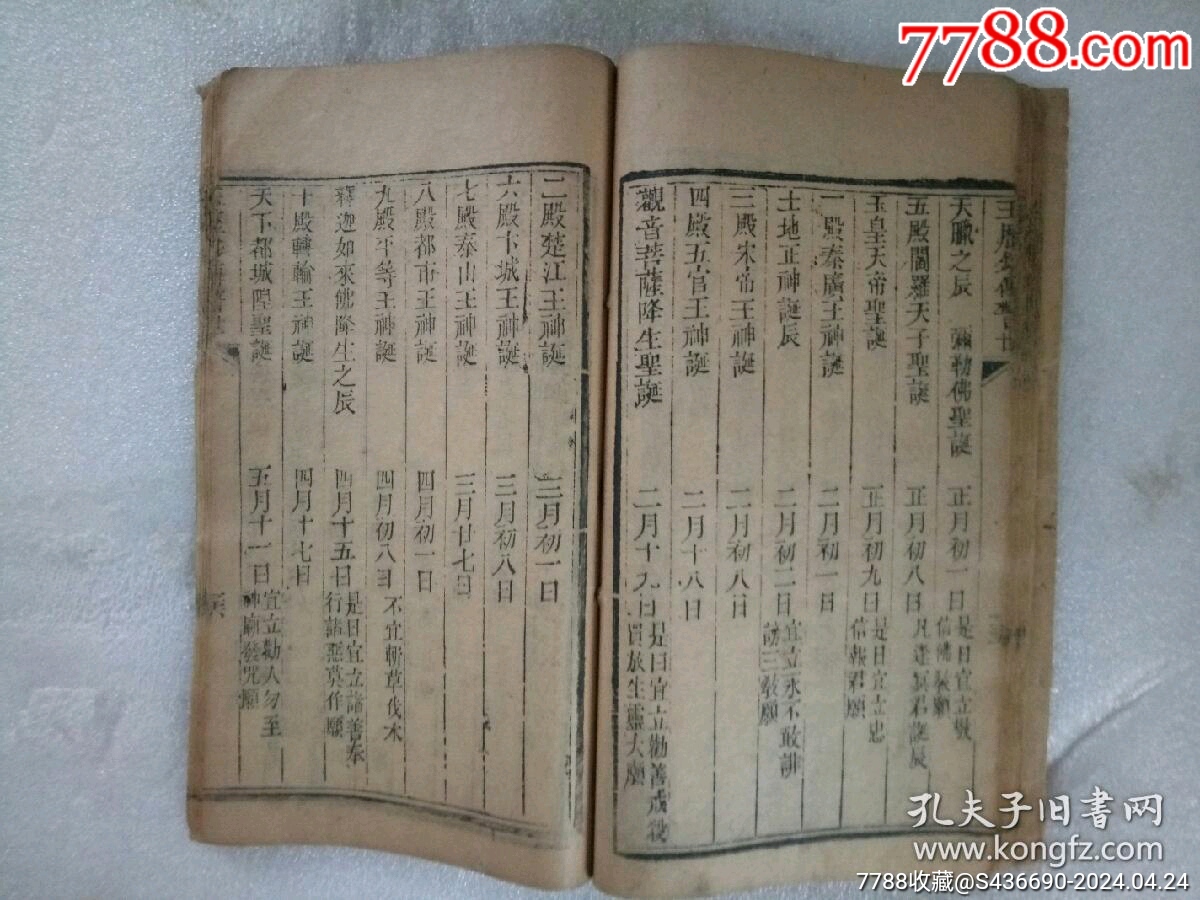 7788.com
天臘之辰 彌勒佛聖誕 正月初一日 是日宜立敬信佛教願
五殿閻羅天子聖誕 正月初八日 凡逢冥君誕辰
玉皇天帝聖誕 正月初九日 是日宜立忠信報君願
一殿秦廣王神誕 二月初一日
土地正神誕辰 二月初二日 宜立永不敢誹謗三教願
三殿宋帝王神誕 二月初八日
四殿五官王神誕 二月十八日
觀音菩薩降生聖誕 二月十九日 是日宜立勸善戒殺買放生靈大願
二殿楚江王神誕 三月初一日
六殿卞城王神誕 三月初八日
七殿泰山王神誕 三月廿七日
八殿都市王神誕 四月初一日
九殿平等王神誕 四月初八日 不宜斬草伐木
釋迦如來佛降生之辰 四月十五日 是日宜立諸善奉行諸惡莫作願
十殿轉輪王神誕 四月十七日
天下都城隍聖誕 五月十一日 宜立勸人勿至神廟發咒願
孔夫子旧书网
www.kongfz.com
7788收藏@S436690-2024.04.24